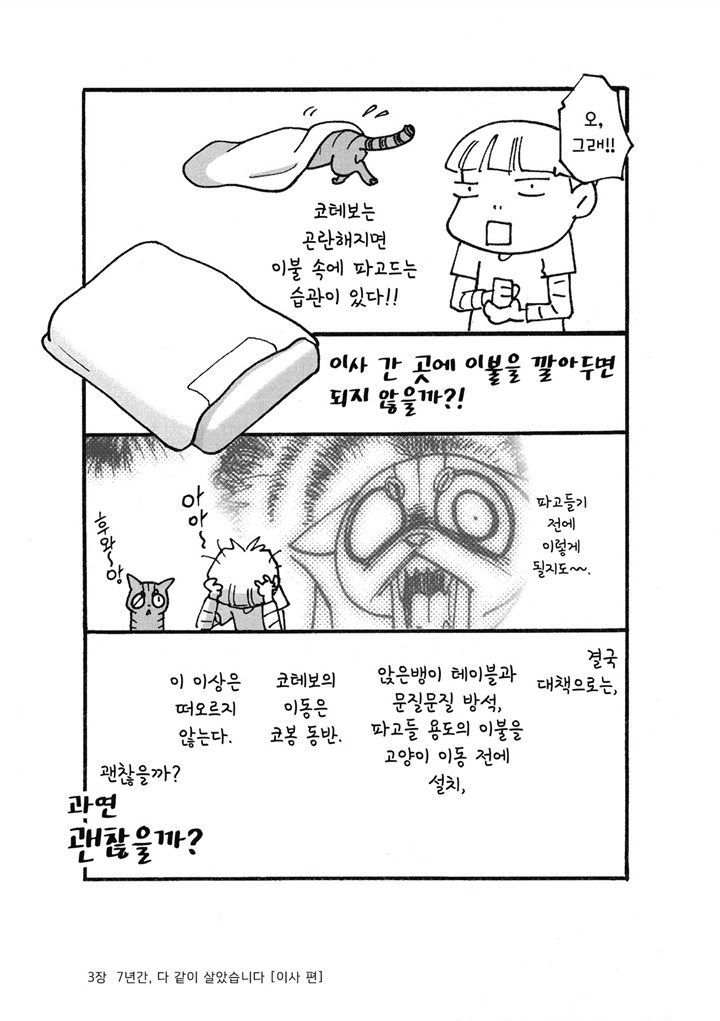 오,
그래!!
코테보는
곤란해지면
이불 속에 파고드는
습관이 있다!!
이사 간 곳에 이불을 깔아두면
되지 않을까?!
파고들기
전에
이렇게
될지도~~.
아
아~
후와~앙
결국
대책으로는,
앉은뱅이 테이블과
문질문질 방석,
파고들 용도의 이불을
고양이 이동 전에
설치,
코테보의
이동은
코봉 동반.
이 이상은
떠오르지
않는다.
괜찮을까?
과연
괜찮을까?
3장 7년간, 다 같이 살았습니다 [이사 편]